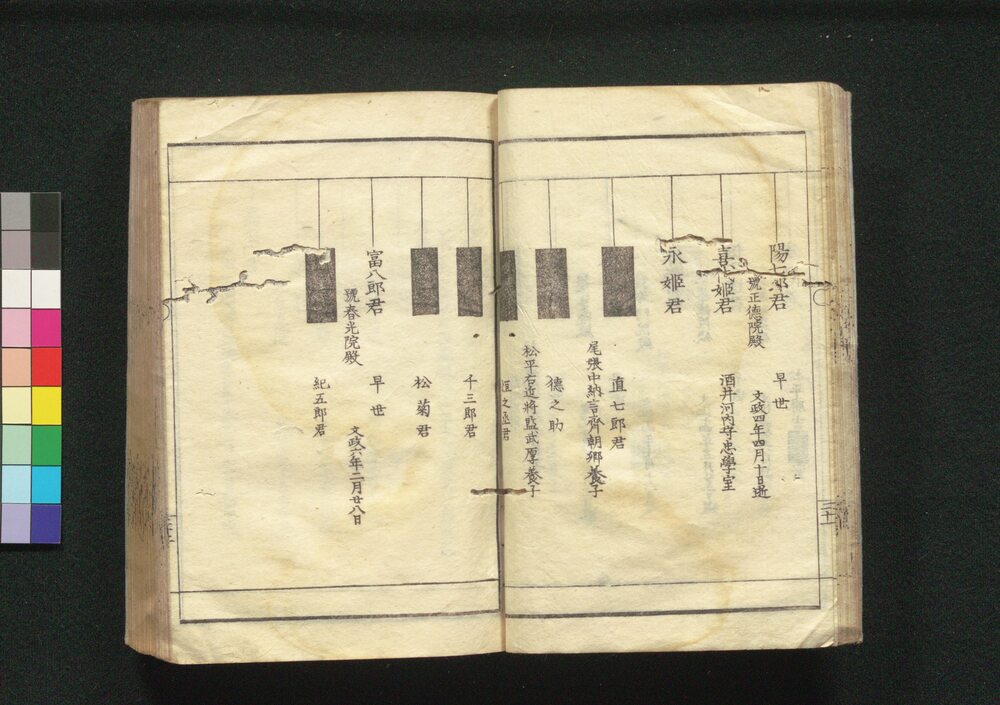 陽七郎君
早世
號正德院殿
文政四年四月十日逝
喜代姫君
酒井河内守忠學室
永姫君
直七郎君
尾張中納言齊朝卿養子
德之助
松平右近將監武厚養子
之丞君
千三郎君
松菊君
富八郎君
早世
號春光院殿
文政六年二月廿八日
紀五郎君